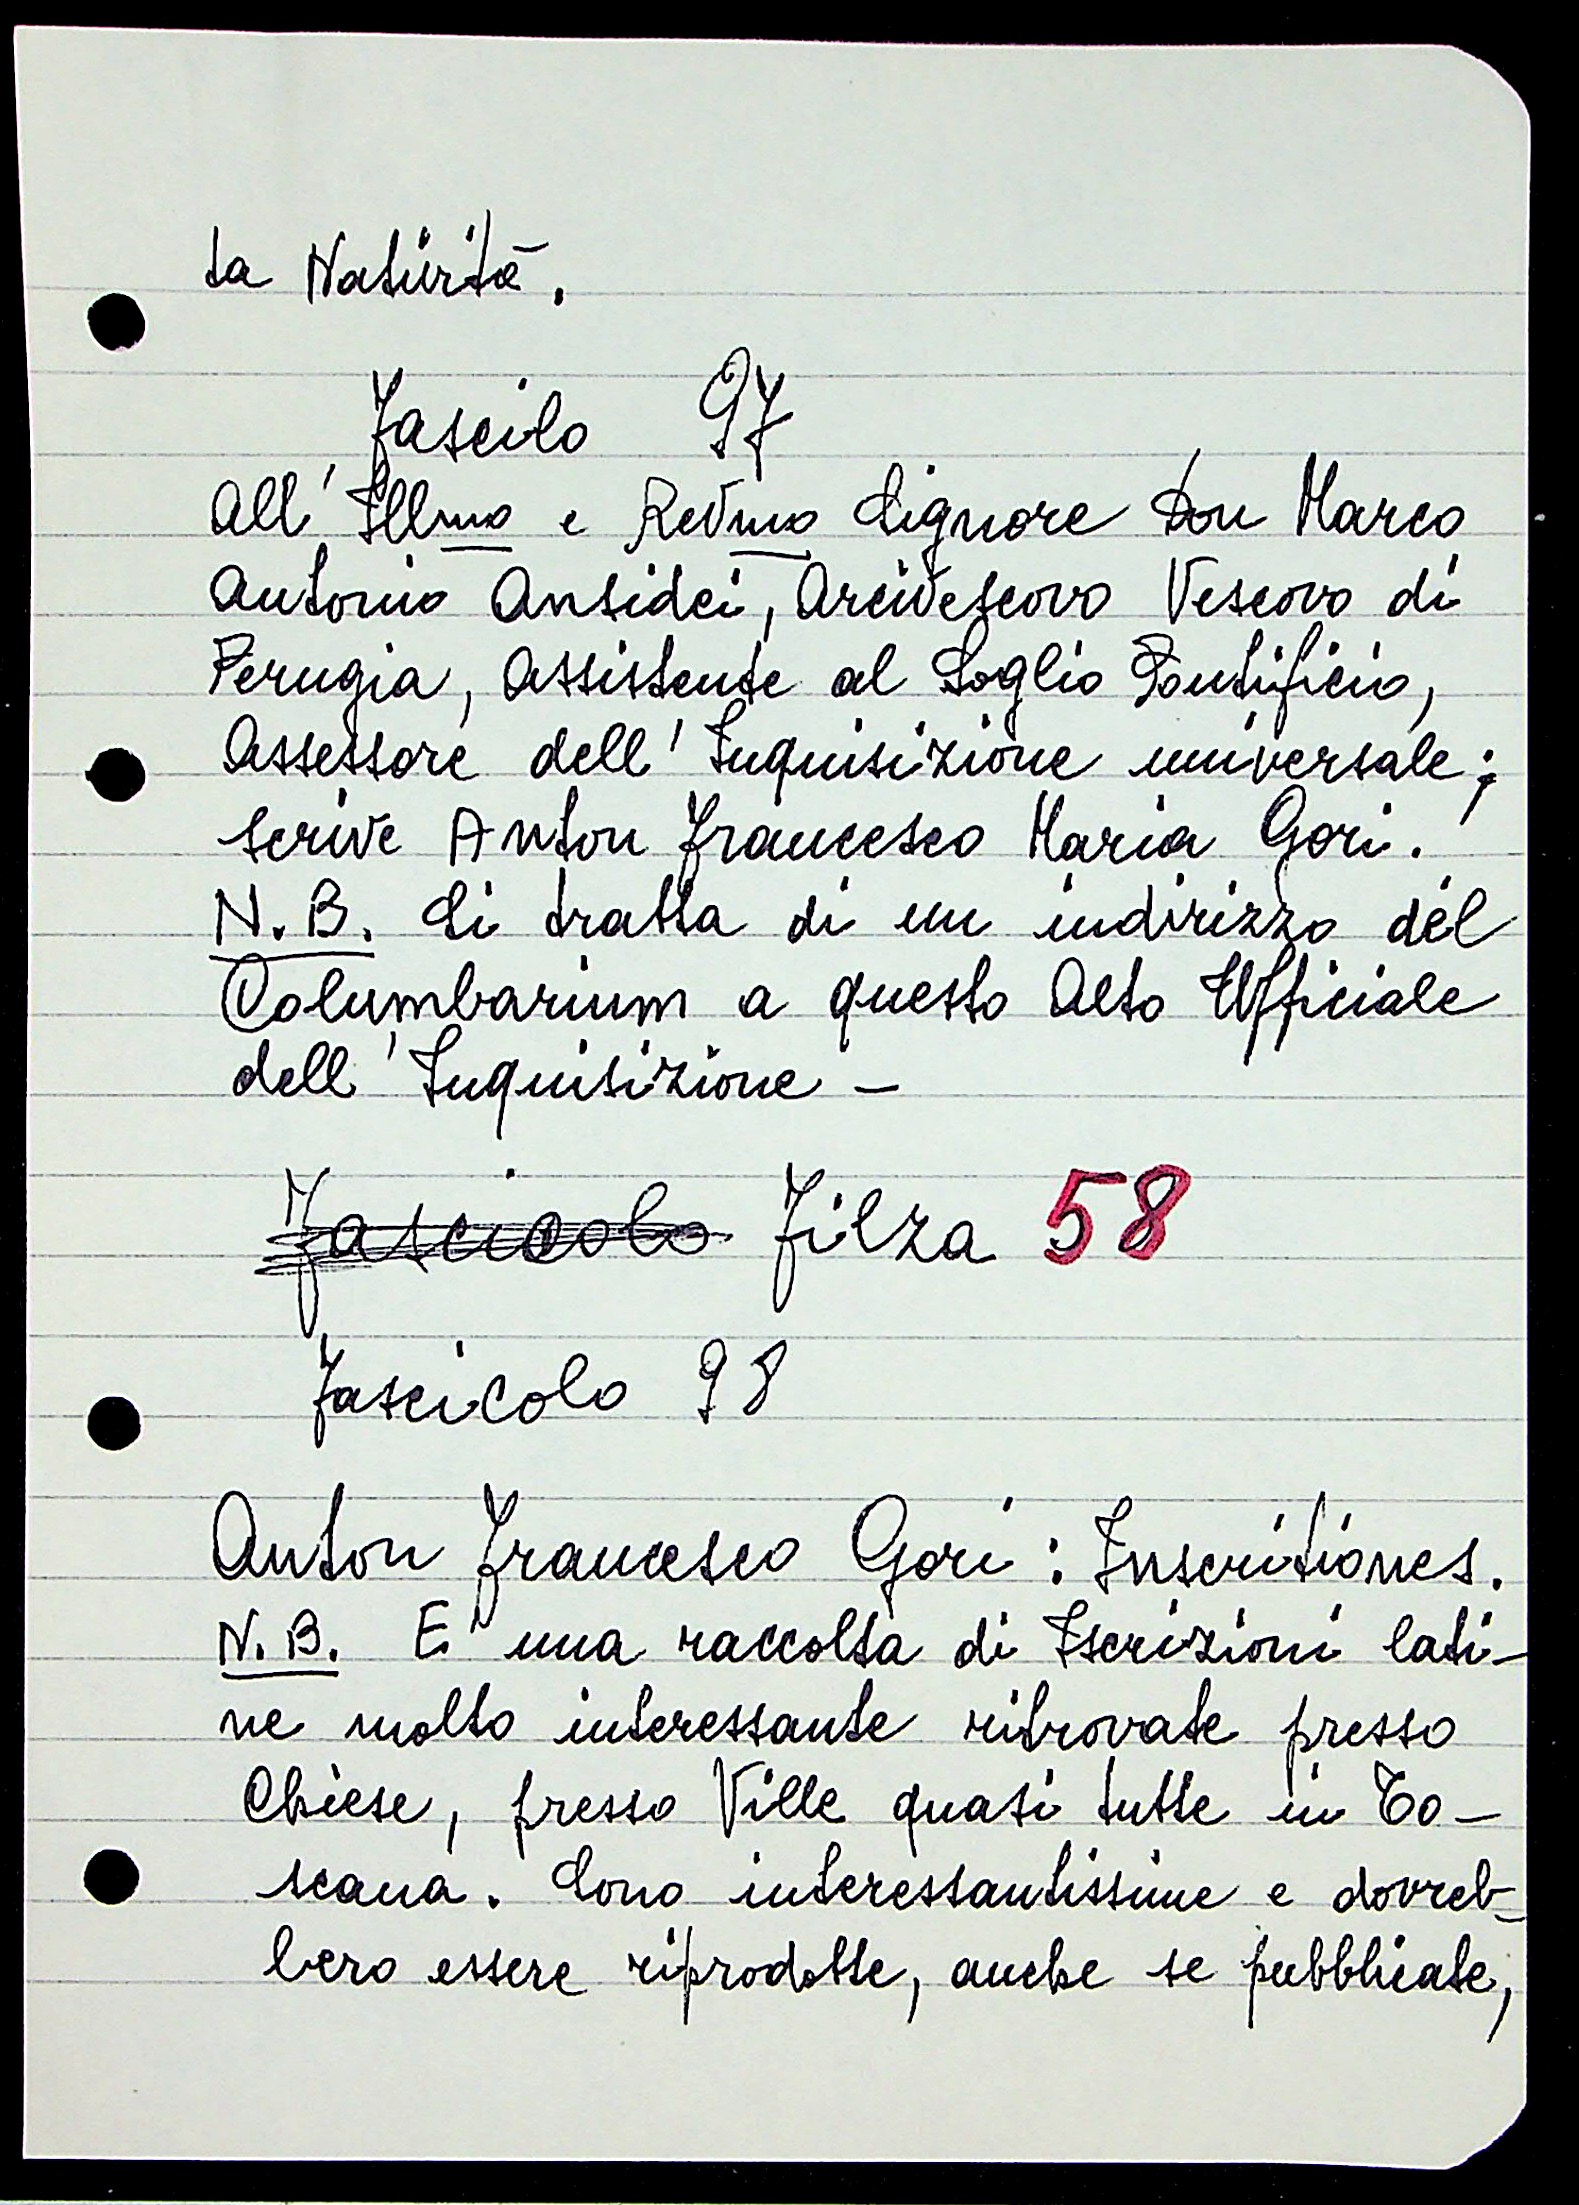 ta Natività.
Fascilo 97
All' Ill<u>mo</u> e Rev<u>mo</u> Signore Don Marco
Antonio Ansidei, Arcivescovo Vescovo di
Perugia, Assistente al Soglio Pontificio,
Assessore dell' Inquisizione universale;
scrive Anton Francesco Maria Gori.
<u>N.B.</u> Si tratta di un indirizzo del
Columbarium a questo Alto Ufficiale
dell' Inquisizione –
~~Fascicolo~~ Filza 58
Fascicolo 98
Anton Francesco Gori: Inscritiones.
<u>N.B.</u> E' una raccolta di Iscrizioni lati-
ne molto interessante ritrovate presso
Chiese, presso Ville quasi tutte in To-
scana. Sono interessantissime e dovreb-
bero essere riprodotte, anche se pubblicate,